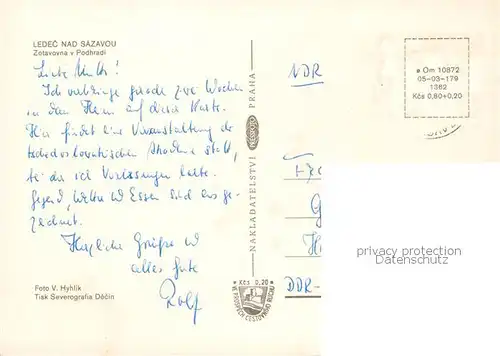 LEDEČ NAD SÁZAVOU
Zotavovna v Podhradí
Liebe Mutti!
Ich verbringe gerade zwei Wochen
in dem Heim auf dieser Karte.
Hier findet eine Veranstaltung der
tschechoslowakischen Akademie statt,
bei der ich Vorlesungen halte.
Gegend, Wetter u Essen sind ausge-
zeichnet.
Herzliche Grüße u
alles Gute
Rolf
Foto V. Hyhlík
Tisk Severografia Děčín
NAKLADATELSTVÍ PRAHA
Kčs 0,20
NDR
Om 10872
05-03-179
1362
Kčs 0,80+0,20
DDR-
privacy protection
Datenschutz